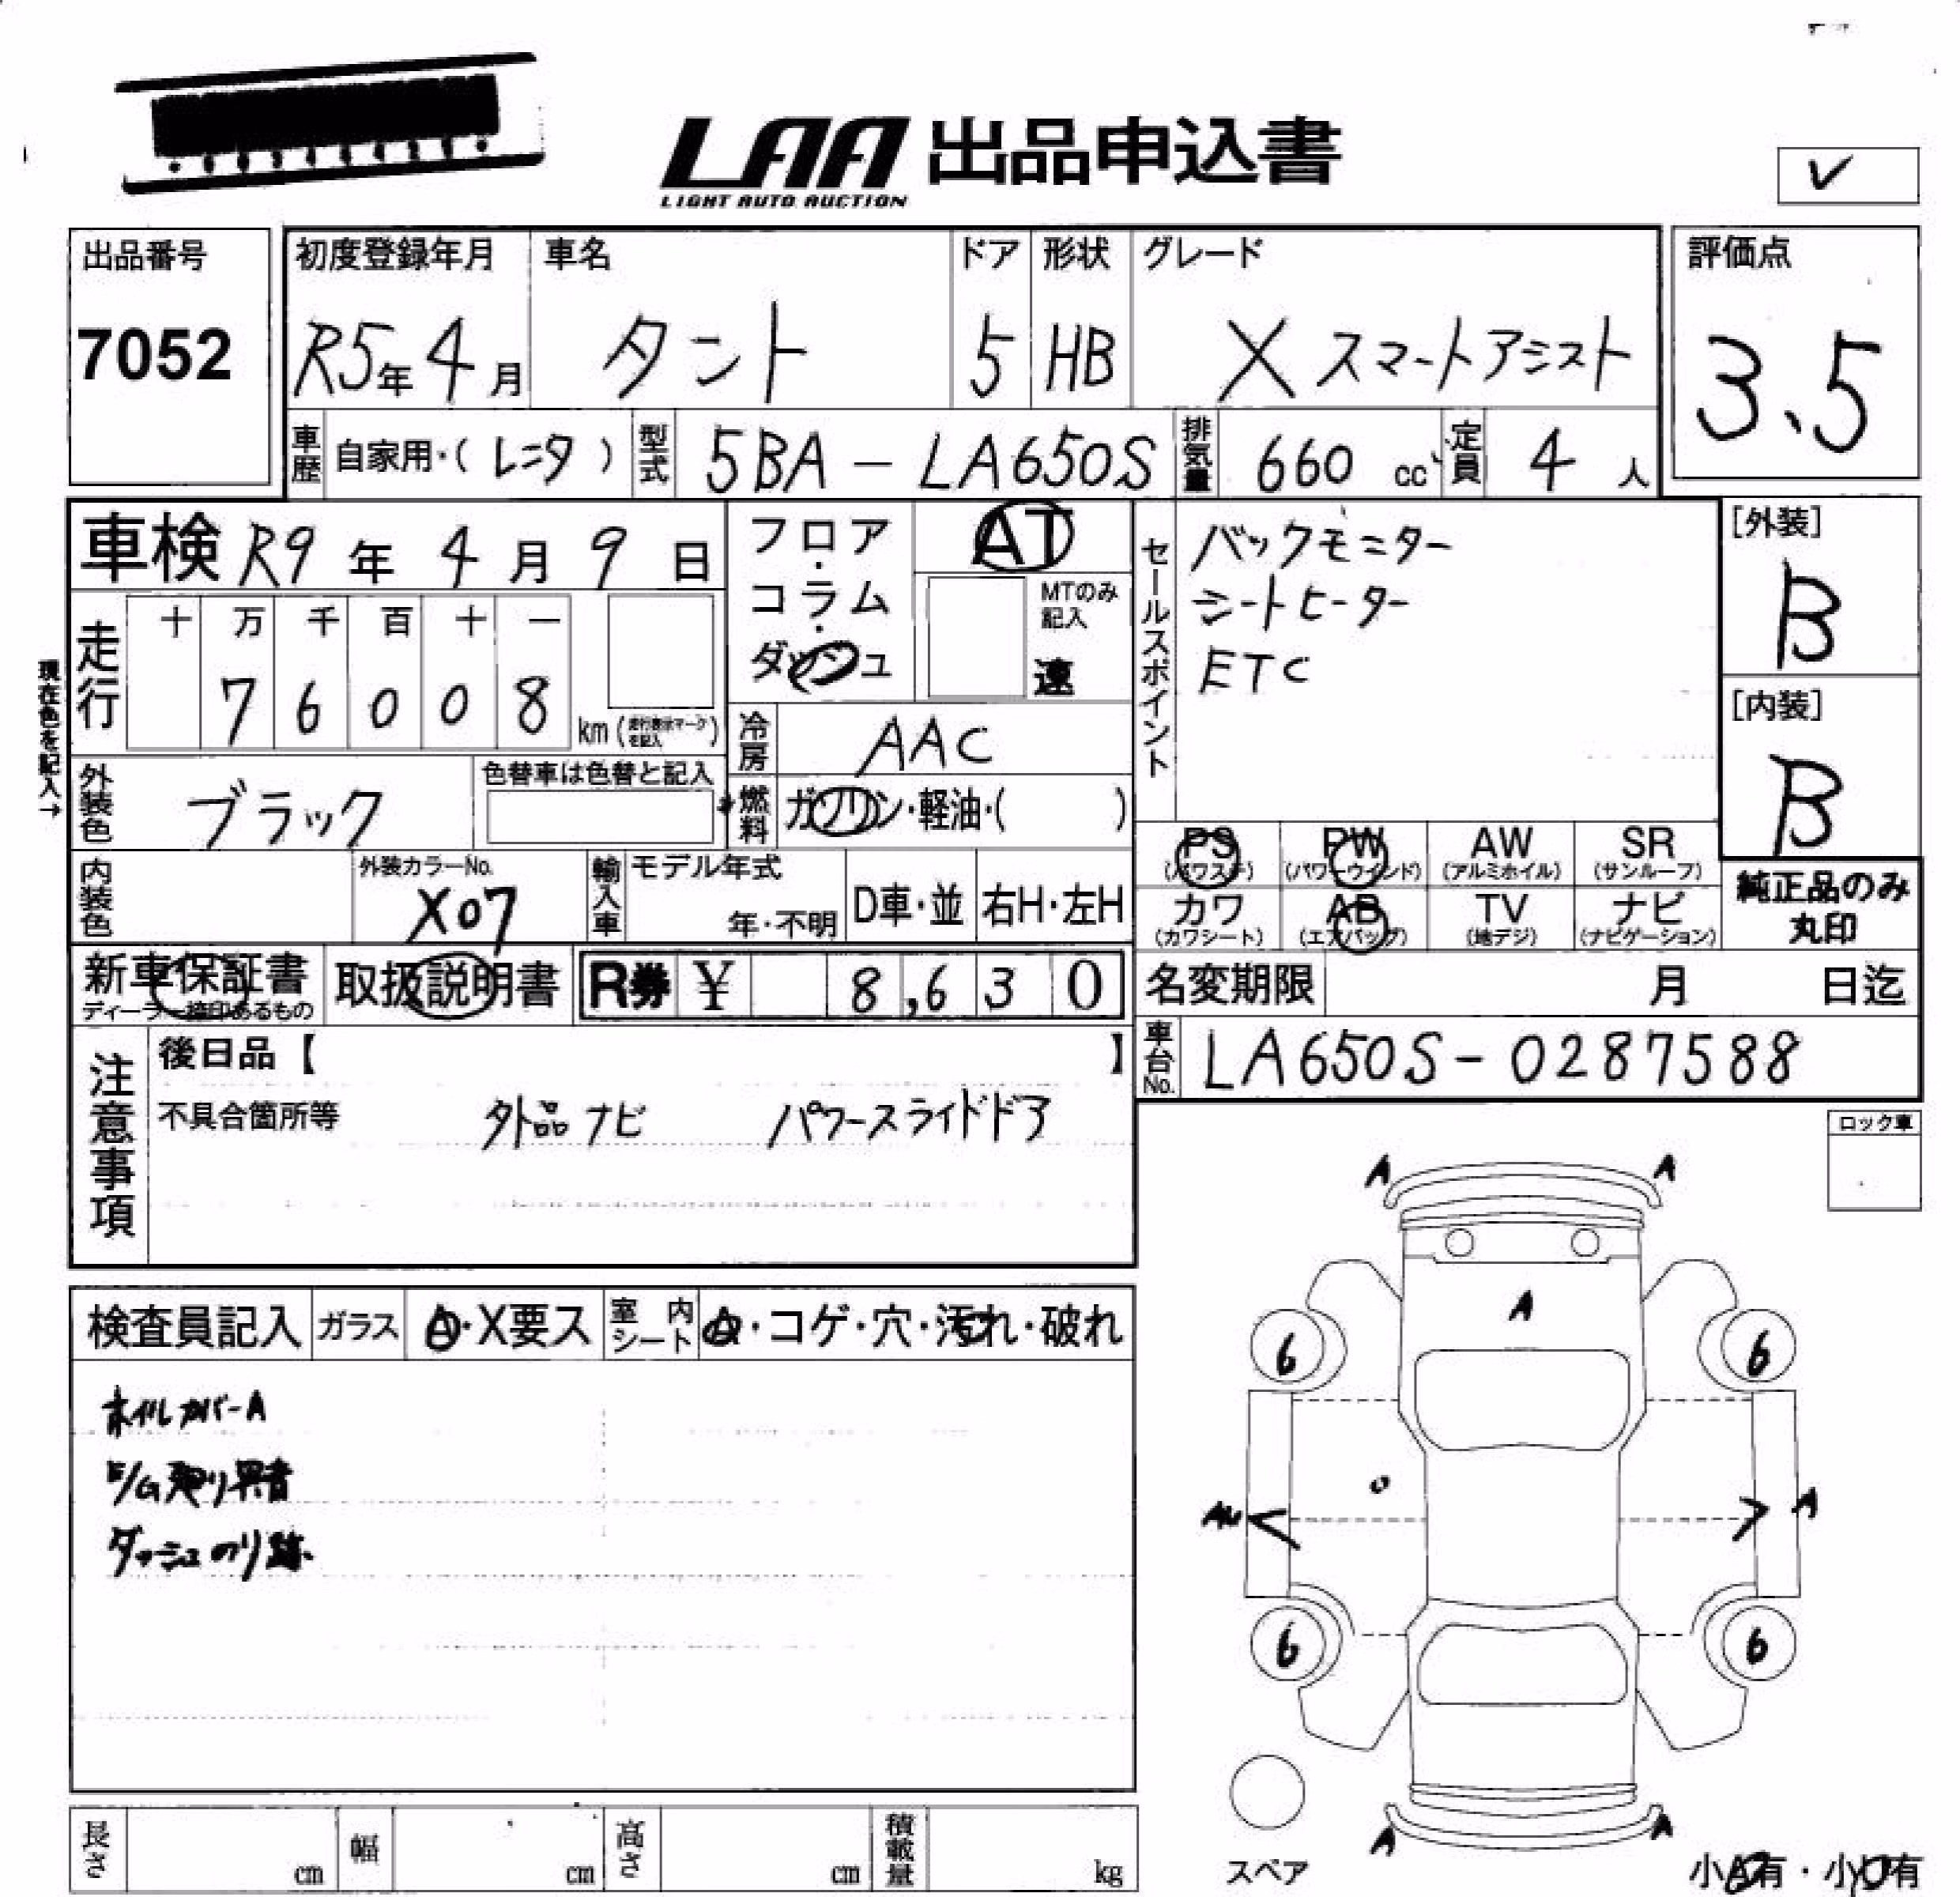 LAA 出品申込書
LIGHT AUTO AUCTION
✓
出品番号
7052
初度登録年月 車名 ドア 形状 グレード
R5年4月 タント 5 HB X スマートアシスト
評価点
3.5
車歴 自家用・(レンタ) 型式 5BA-LA650S 排気量 660 cc 定員 4 人
車検 R9年4月9日
フロア・コラム・ダッシュ
AT
MTのみ記入
速
セールスポイント
バックモニター
シートヒーター
ETC
[外装]
B
[内装]
B
現在色を記入→
走行 十 万 千 百 十 一
7 6 0 0 8 km (走行表示マークを記入)
冷房 AAC
外装色 ブラック
色替車は色替と記入
燃料 ガソリン・軽油・( )
PS (パワステ) PW (パワーウィンド) AW (アルミホイル) SR (サンルーフ)
カワ (カワシート) AB (エアバッグ) TV (地デジ) ナビ (ナビゲーション)
純正品のみ
丸印
内装色 外装カラーNo. X07
輸入車 モデル年式 年・不明 D車・並 右H・左H
新車保証書 取扱説明書 R券 ¥ 8,630
ディーラー捺印あるもの
名変期限 月 日迄
車台No. LA650S-0287588
注意事項
後日品【 】
不具合箇所等 外品ナビ パワースライドドア
ロック車
検査員記入 ガラス A・X要ス 室内シート A・コゲ・穴・汚れ・破れ
ホイルカバーA
F/G廻り異音
ダッシュのり跡
A A
A
6 6
AU A
6 6
A A
スペア
小A有・小U有
長さ cm 幅 cm 高さ cm 積載量 kg